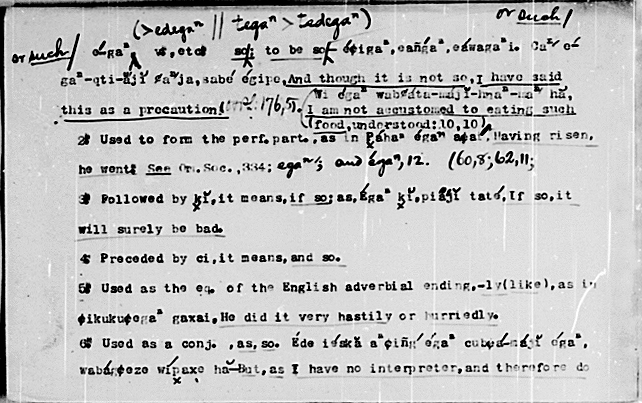 (>edegaⁿ || ŧegaⁿ > ŧsdegaⁿ)
or such/
or such/
é·gaⁿ, vs, etc so; to be so, égiga, eaⁿga, eáwagai. Caⁿ é-
gaⁿ-qti-ăjĭ ¢aⁿja, sabé égipe, And though it is not so, I have said
this as a precaution. 176,5. Wi égaⁿ wab¢áta-májĭ-hnaⁿ-maⁿ hă,
I am not accustomed to eating such
(food, understood: 10,10)
2. Used to form the perf. part., as in Páhaⁿ égaⁿ a¢aí, Having risen,
he went. See Om. Soc., 334; egaⁿ; and égaⁿ, 12. (60,8; 62,11;
3. Followed by ḳĭ, it means, if so; as, Égaⁿ ḳĭ, piăjĭ taté, If so, it
will surely be bad.
4. Preceded by ci, it means, and so.
5. Used as the eq. of the English adverbial ending, -ly (like), as in
¢ikuku¢egaⁿ gaxai, He did it very hastily or hurriedly.
6. Used as a conj., as, so. Éde iéskă a¢iñgégaⁿ cub¢á-májĭ égaⁿ,
wabág¢eze wípaxe hă—But, as I have no interpreter, and therefore do